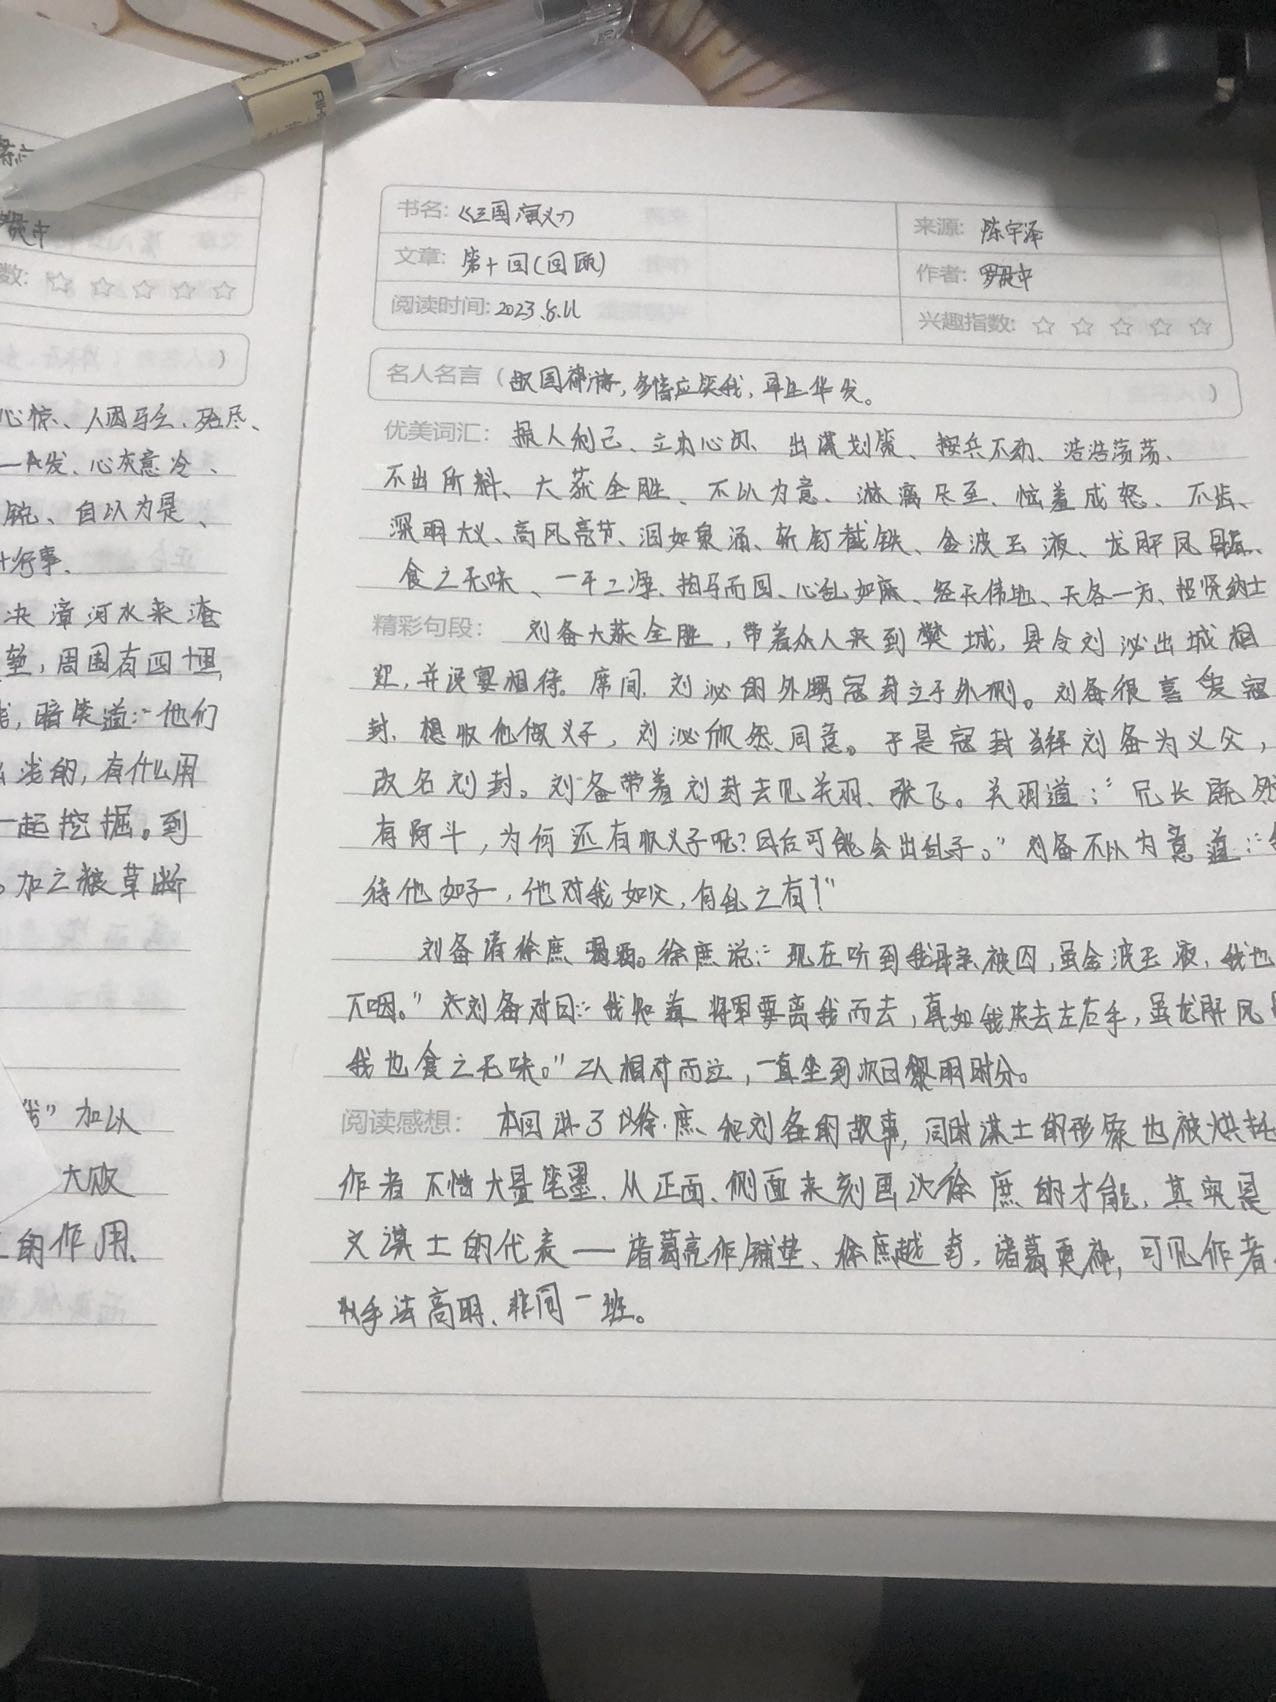 书名:《三国演义》
来源: 陈宇泽
文章: 第十回(回顾)
作者: 罗贯中
阅读时间: 2023.8.11
兴趣指数: ☆ ☆ ☆ ☆ ☆
名人名言(故国神游,多情应笑我,早生华发。)
优美词汇: 损人利己、出谋划策、按兵不动、浩浩荡荡、
不出所料、大获全胜、不以为意、淋漓尽至、恼羞成怒、不齿、
深明大义、高风亮节、泪如泉涌、斩钉截铁、金波玉液、龙肝凤髓、
食之无味、一干二净、拍马而回、心乱如麻、经天伟地、天各一方、招贤纳士
精彩句段: 刘备大获全胜,带着众人来到樊城,县令刘泌出城相
迎,并设宴相待。席间,刘泌的外甥寇封立于外侧。刘备很喜爱寇
封,想收他做义子,刘泌欣然同意。于是寇封拜刘备为义父,
改名刘封。刘备带着刘封去见关羽、张飞。关羽道:“兄长既然
有阿斗,为何还有收义子呢?日后可能会出乱子。”刘备不以为意道:“
待他如子,他对我如父,何乱之有!”
刘备请徐庶喝酒。徐庶说:“现在听到我母亲被囚,虽金波玉液,我也
下咽。”刘备对曰:“我知道将军要离我而去,真如我失去左右手,虽龙肝凤
我也食之无味。”二人相对而泣,一直坐到次日黎明时分。
阅读感想: 本回讲了以徐庶和刘备的故事,同时谋士的形象也被烘托
作者不惜大量笔墨、从正面、侧面来刻画次徐庶的才能,其实是
文谋士的代表——诸葛亮作铺垫、徐庶越奇,诸葛更神,可见作者
手法高明、非同一班。
数: ☆ ☆ ☆ ☆ ☆
)
心惊、人困马乏、死尽、
一发、心灰意冷、
锐、自以为是、
计行事、
决漳河水来淹
堑,周围有四十里
,暗笑道:“他们
么浅的,有什么用
一起挖掘。到
。加之粮草断
”加以
大败
的作用、